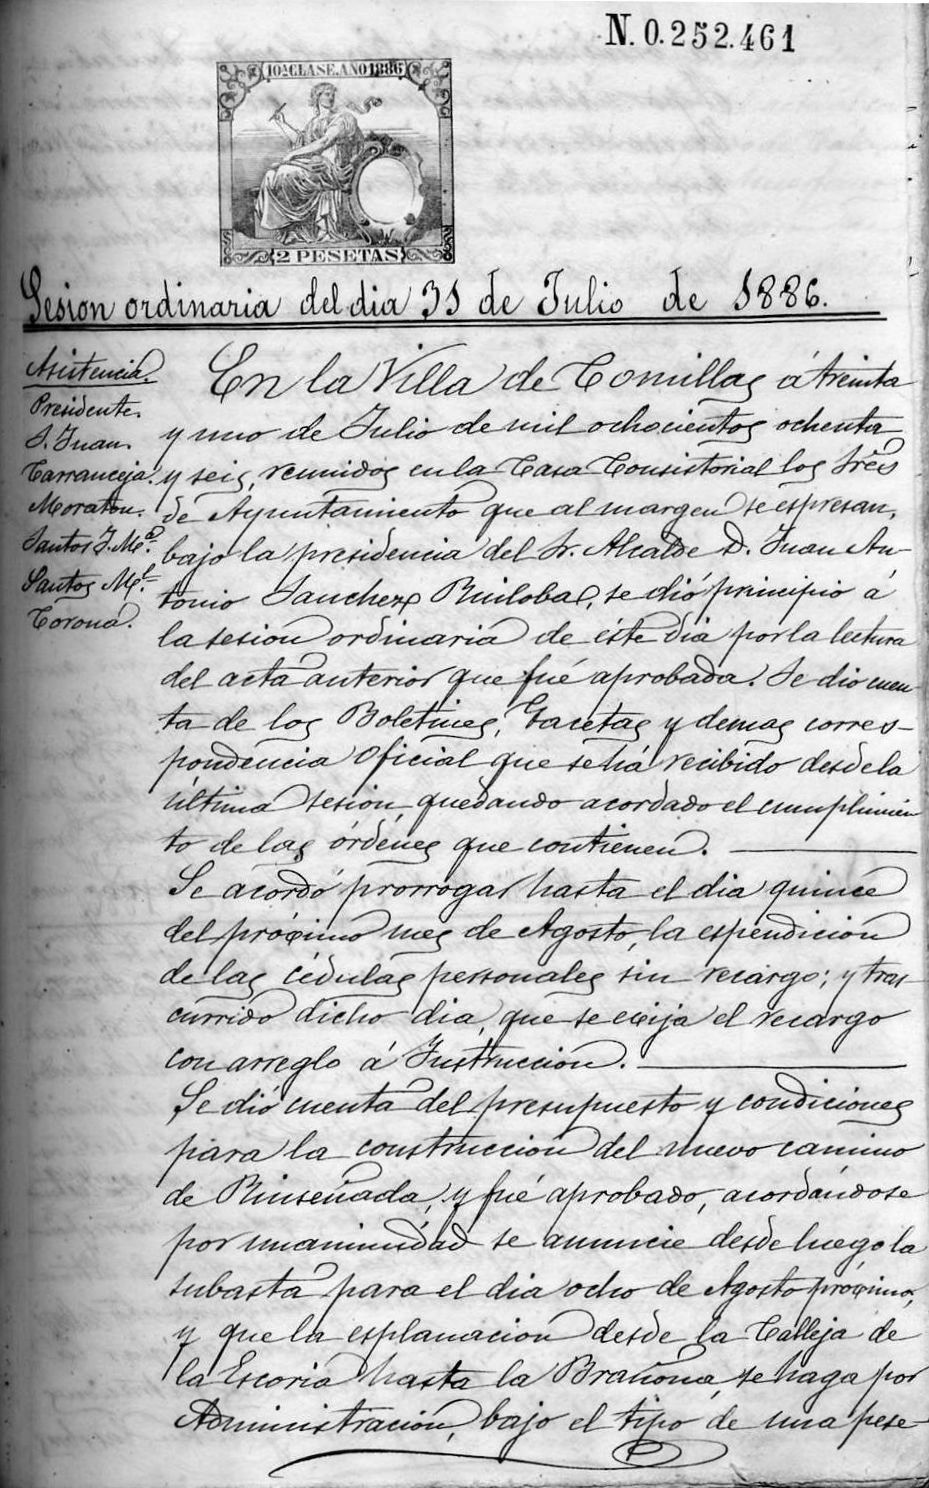 N. 0.252.461
10ª CLASE. AÑO 1886
2 PESETAS
Sesion ordinaria del dia 31 de Julio de 1886.
Asistencia.
Presidente.
S. Juan.
Carranceja.
Moraton.
Santos J. Mª.
Santos Ml.
Corona.
En la Villa de Comillas á treinta
y uno de Julio de mil ochocientos ochenta
y seis, reunidos en la Casa Consistorial los Sres
de Ayuntamiento que al margen se espresan,
bajo la presidencia del Sr. Alcalde D. Juan An-
tonio Sanchez Ruiloba, se dió principio á
la sesion ordinaria de éste dia por la lectura
del acta anterior que fué aprobada. Se dio cuen-
ta de los Boletines, Gacetas y demas corres-
pondencia oficial que se há recibido desde la
última sesion, quedando acordado el cumplimien
to de las órdenes que contienen.
Se acordó prorrogar hasta el dia quince
del próximo mes de Agosto, la espendicion
de las cédulas personales sin recargo; y tras-
currido dicho dia, que se exija el recargo
con arreglo á Instruccion.
Se dió cuenta del presupuesto y condiciones
para la construccion del nuevo camino
de Rinseñada, y fué aprobado, acordándose
por unanimidad se anuncie desde luego la
subasta para el dia ocho de Agosto próximo,
y que la esplanacion desde la Calleja de
la Escoria hasta la Brañona, se haga por
Administracion, bajo el tipo de una pese-